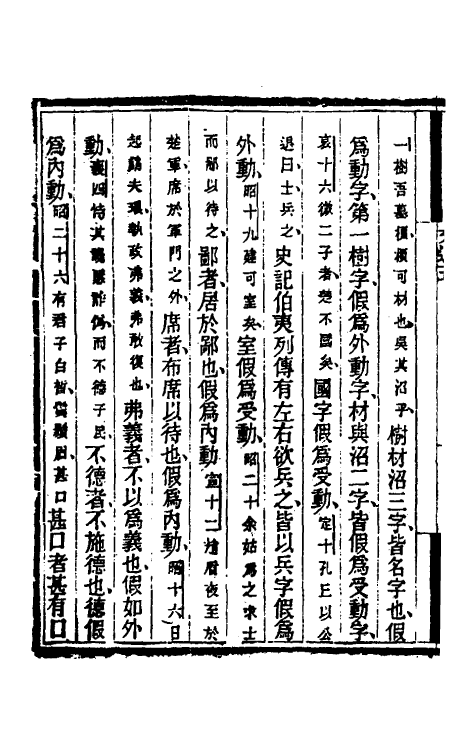 一樹吾墓檟檟可材也吳其沼乎樹材沼三字皆名字也假
爲動字第一樹字假爲外動字材與沼二字皆假爲受動字
哀十六微二子者楚不國矣國字假爲受動定十孔丘以公
退曰士兵之史記伯夷列傳有左右欲兵之皆以兵字假爲
外動昭十九建可室矣室假爲受動昭二十余姑爲之求士
而鄙以待之鄙者居於鄙也假爲內動宣十二趙旃夜至於
楚軍席於軍門之外席者布席以待也假爲內動昭十六日
起請夫環執政弗義弗敢復也弗義者不以爲義也假如外
動襄四恃其讒慝詐僞而不德于民不德者不施德也德假
爲內動昭二十六有君子白皙鬒鬚眉甚口甚口者甚有口